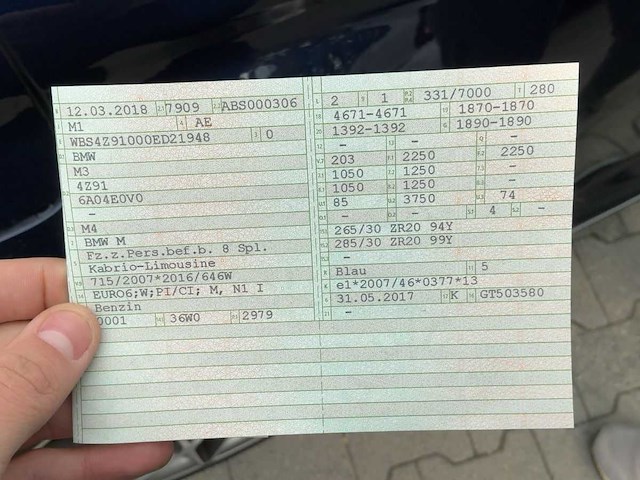 12.03.2018 7909 ABS000306
M1 AE
WBS4Z91000ED21948 0
BMW
M3
4Z91
6A04E0V0
–
M4
BMW M
Fz.z.Pers.bef.b. 8 Spl.
Kabrio-Limousine
715/2007*2016/646W
EURO6;W;PI/CI; M, N1 I
Benzin
0001 36W0 2979
2 1 331/7000 280
4671-4671 1870-1870
1392-1392 1890-1890
– – –
203 2250 2250
1050 1250
1050 1250
85 3750 74
– – 4 –
265/30 ZR20 94Y
285/30 ZR20 99Y
–
Blau 5
e1*2007/46*0377*13
31.05.2017 K GT503580
–